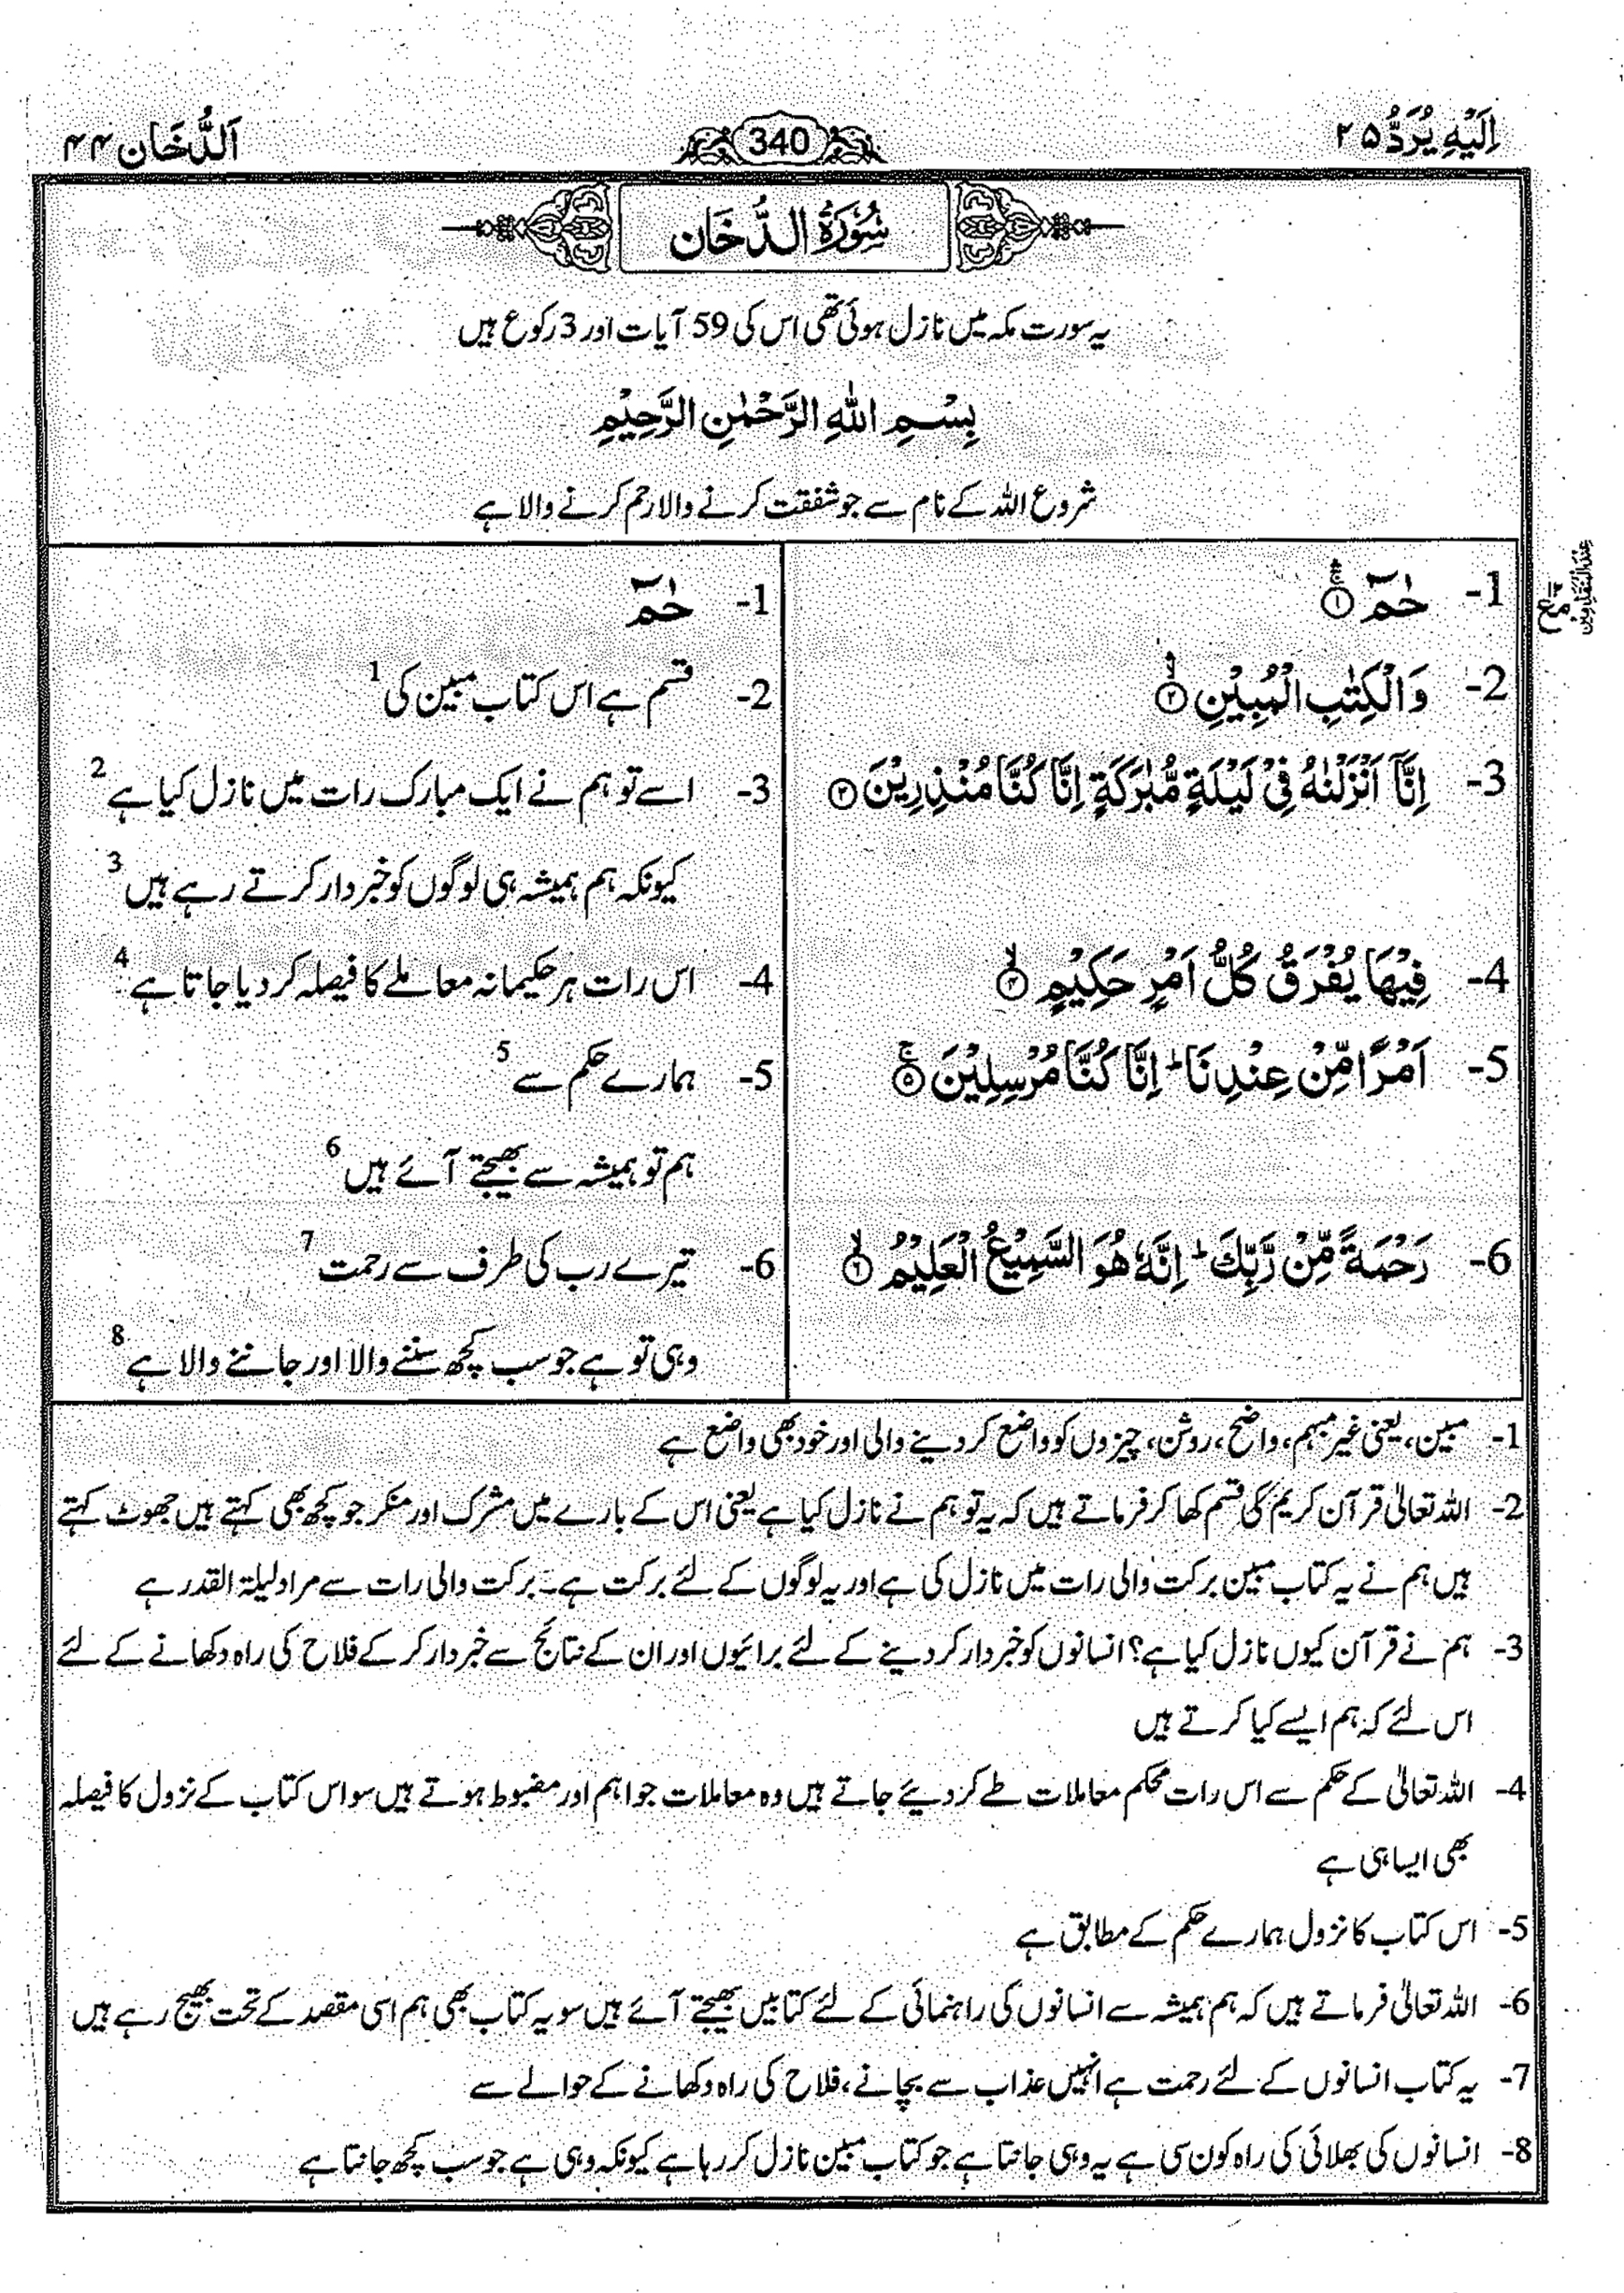 اِلَيْهِ يُرَدُّ ۲۵
340
اَلدُّخَان ۴۴
سُوْرَةُ الدُّخَان
یہ سورت مکہ میں نازل ہوئی تھی اس کی 59 آیات اور 3 رکوع ہیں
بِسْمِ اللهِ الرَّحْمٰنِ الرَّحِيْمِ
شروع اللہ کے نام سے جو شفقت کرنے والا رحم کرنے والا ہے
1- حٰمٓ ۚ۱
2- وَالْكِتٰبِ الْمُبِيْنِ ۙ۲
3- اِنَّاۤ اَنْزَلْنٰهُ فِيْ لَيْلَةٍ مُّبٰرَكَةٍ اِنَّا كُنَّا مُنْذِرِيْنَ ۳
4- فِيْهَا يُفْرَقُ كُلُّ اَمْرٍ حَكِيْمٍ ۙ۴
5- اَمْرًا مِّنْ عِنْدِنَا ؕ اِنَّا كُنَّا مُرْسِلِيْنَ ۚ۵
6- رَحْمَةً مِّنْ رَّبِّكَ ؕ اِنَّهٗ هُوَ السَّمِيْعُ الْعَلِيْمُ ۙ۶
1- حٰمٓ
2- قسم ہے اس کتاب مبین کی 1
3- اسے تو ہم نے ایک مبارک رات میں نازل کیا ہے 2
کیونکہ ہم ہمیشہ ہی لوگوں کو خبردار کرتے رہے ہیں 3
4- اس رات ہر حکیمانہ معاملے کا فیصلہ کر دیا جاتا ہے 4
5- ہمارے حکم سے 5
ہم تو ہمیشہ سے بھیجتے آئے ہیں 6
6- تیرے رب کی طرف سے رحمت 7
وہی تو ہے جو سب کچھ سننے والا اور جاننے والا ہے 8
1- مبین، یعنی غیر مبہم، واضح، روشن، چیزوں کو واضع کر دینے والی اور خود بھی واضع ہے
2- اللہ تعالیٰ قرآن کریم کی قسم کھا کر فرماتے ہیں کہ یہ تو ہم نے نازل کیا ہے یعنی اس کے بارے میں مشرک اور منکر جو کچھ بھی کہتے ہیں جھوٹ کہتے
ہیں ہم نے یہ کتاب مبین برکت والی رات میں نازل کی ہے اور یہ لوگوں کے لئے برکت ہے۔ برکت والی رات سے مراد لیلۃ القدر ہے
3- ہم نے قرآن کیوں نازل کیا ہے؟ انسانوں کو خبردار کر دینے کے لئے برائیوں اور ان کے نتائج سے خبردار کر کے فلاح کی راہ دکھانے کے لئے
اس لئے کہ ہم ایسے کیا کرتے ہیں
4- اللہ تعالیٰ کے حکم سے اس رات محکم معاملات طے کر دیئے جاتے ہیں وہ معاملات جو اہم اور مضبوط ہوتے ہیں سو اس کتاب کے نزول کا فیصلہ
بھی ایسا ہی ہے
5- اس کتاب کا نزول ہمارے حکم کے مطابق ہے
6- اللہ تعالیٰ فرماتے ہیں کہ ہم ہمیشہ سے انسانوں کی راہنمائی کے لئے کتابیں بھیجتے آئے ہیں سو یہ کتاب بھی ہم اسی مقصد کے تحت بھیج رہے ہیں
7- یہ کتاب انسانوں کے لئے رحمت ہے انہیں عذاب سے بچانے، فلاح کی راہ دکھانے کے حوالے سے
8- انسانوں کی بھلائی کی راہ کون سی ہے یہ وہی جانتا ہے جو کتاب مبین نازل کر رہا ہے کیونکہ وہی ہے جو سب کچھ جانتا ہے